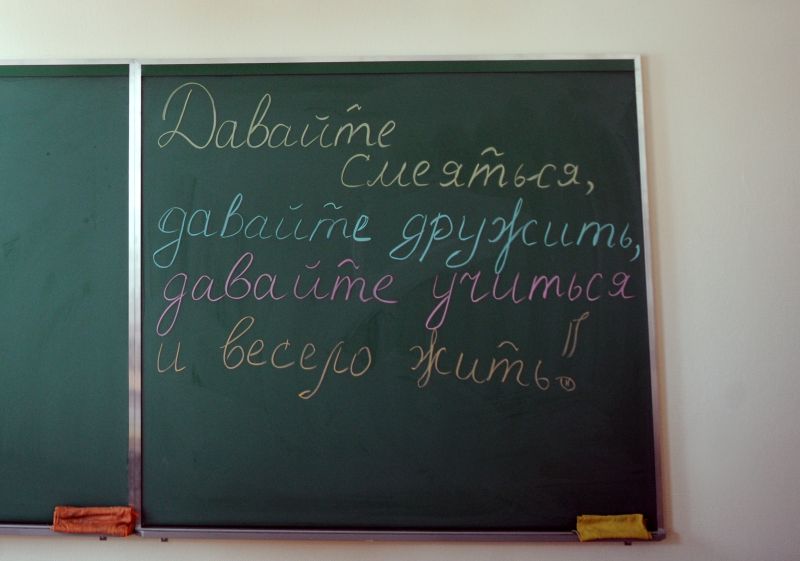 Давайте
смеяться,
давайте дружить,
давайте учиться
и весело жить!!